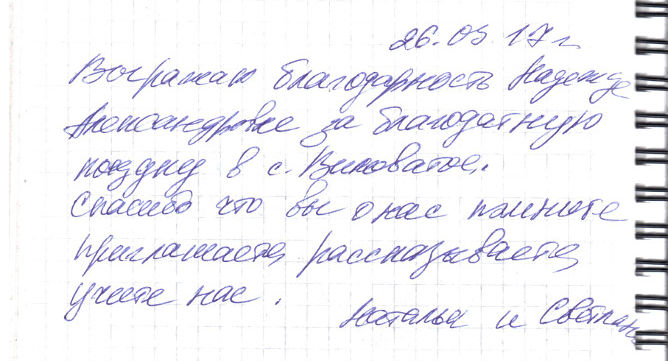 26.05.17 г
Выражаю благодарность Надежде
Александровне за благодатную
поездку в с. Виловатое.
Спасибо что вы о нас помните
приглашаете, рассказываете,
учите нас.
Наталья и Светлана